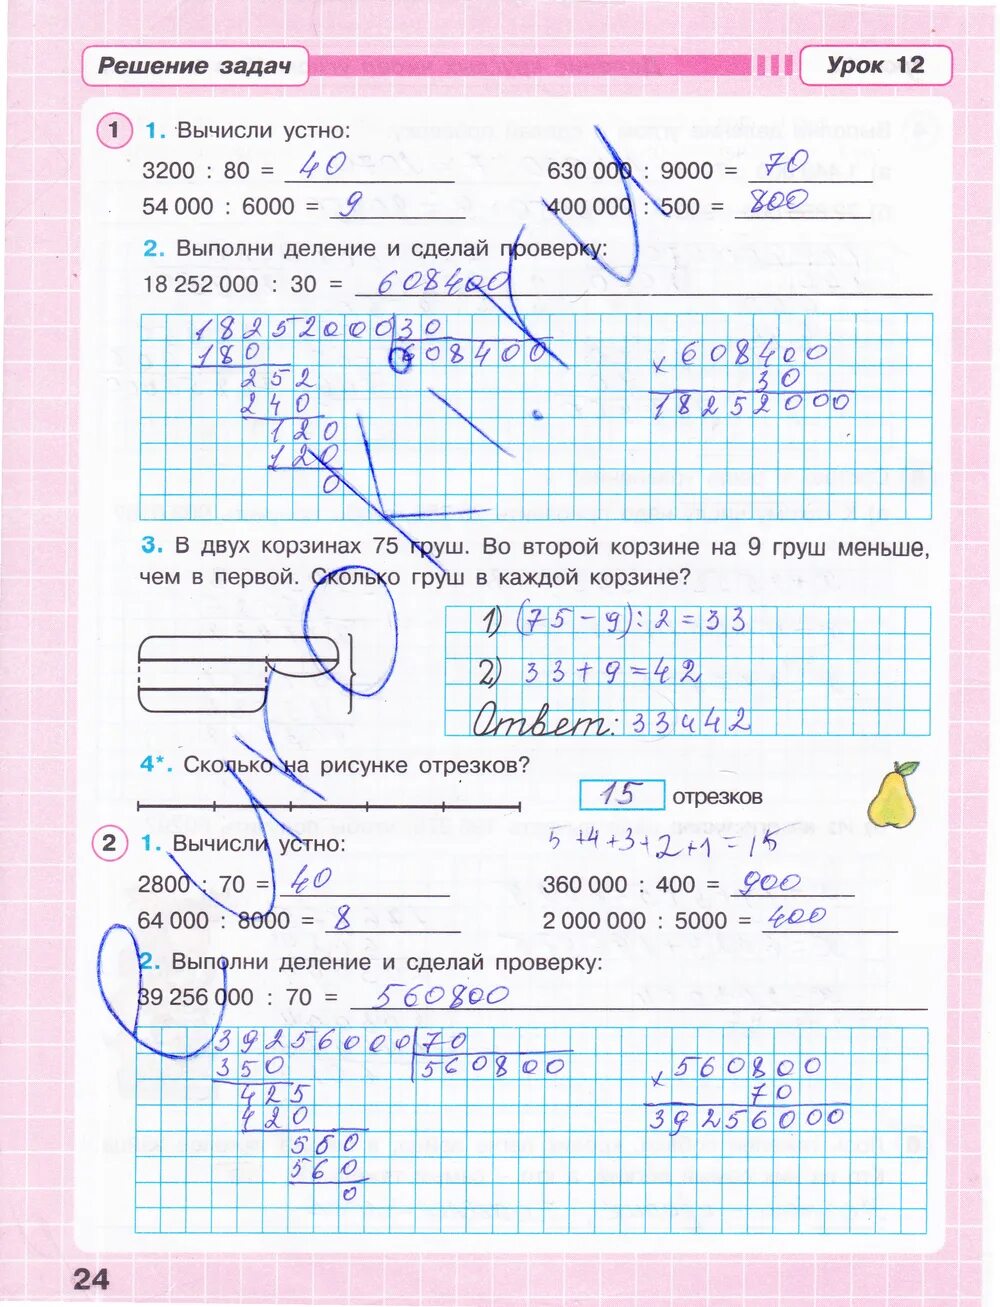 Решение задач
Урок 12
1 1. Вычисли устно:
3200 : 80 = 40 630 000 : 9000 = 70
54 000 : 6000 = 9 400 000 : 500 = 800
2. Выполни деление и сделай проверку:
18 252 000 : 30 = 608400
18252000 30
180 608400
252
240
120
120
0
× 608400
30
18252000
3. В двух корзинах 75 груш. Во второй корзине на 9 груш меньше,
чем в первой. Сколько груш в каждой корзине?
1) (75-9):2=33
2) 33+9=42
Ответ: 33 и 42
4*. Сколько на рисунке отрезков?
15 отрезков
5+4+3+2+1=15
2 1. Вычисли устно:
2800 : 70 = 40 360 000 : 400 = 900
64 000 : 8000 = 8 2 000 000 : 5000 = 400
2. Выполни деление и сделай проверку:
39 256 000 : 70 = 560800
39256000 70
350 560800
425
420
560
560
0
× 560800
70
39256000
24